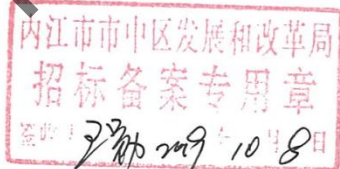 内江市市中区发展和改革局
招标备案专用章
10月8日